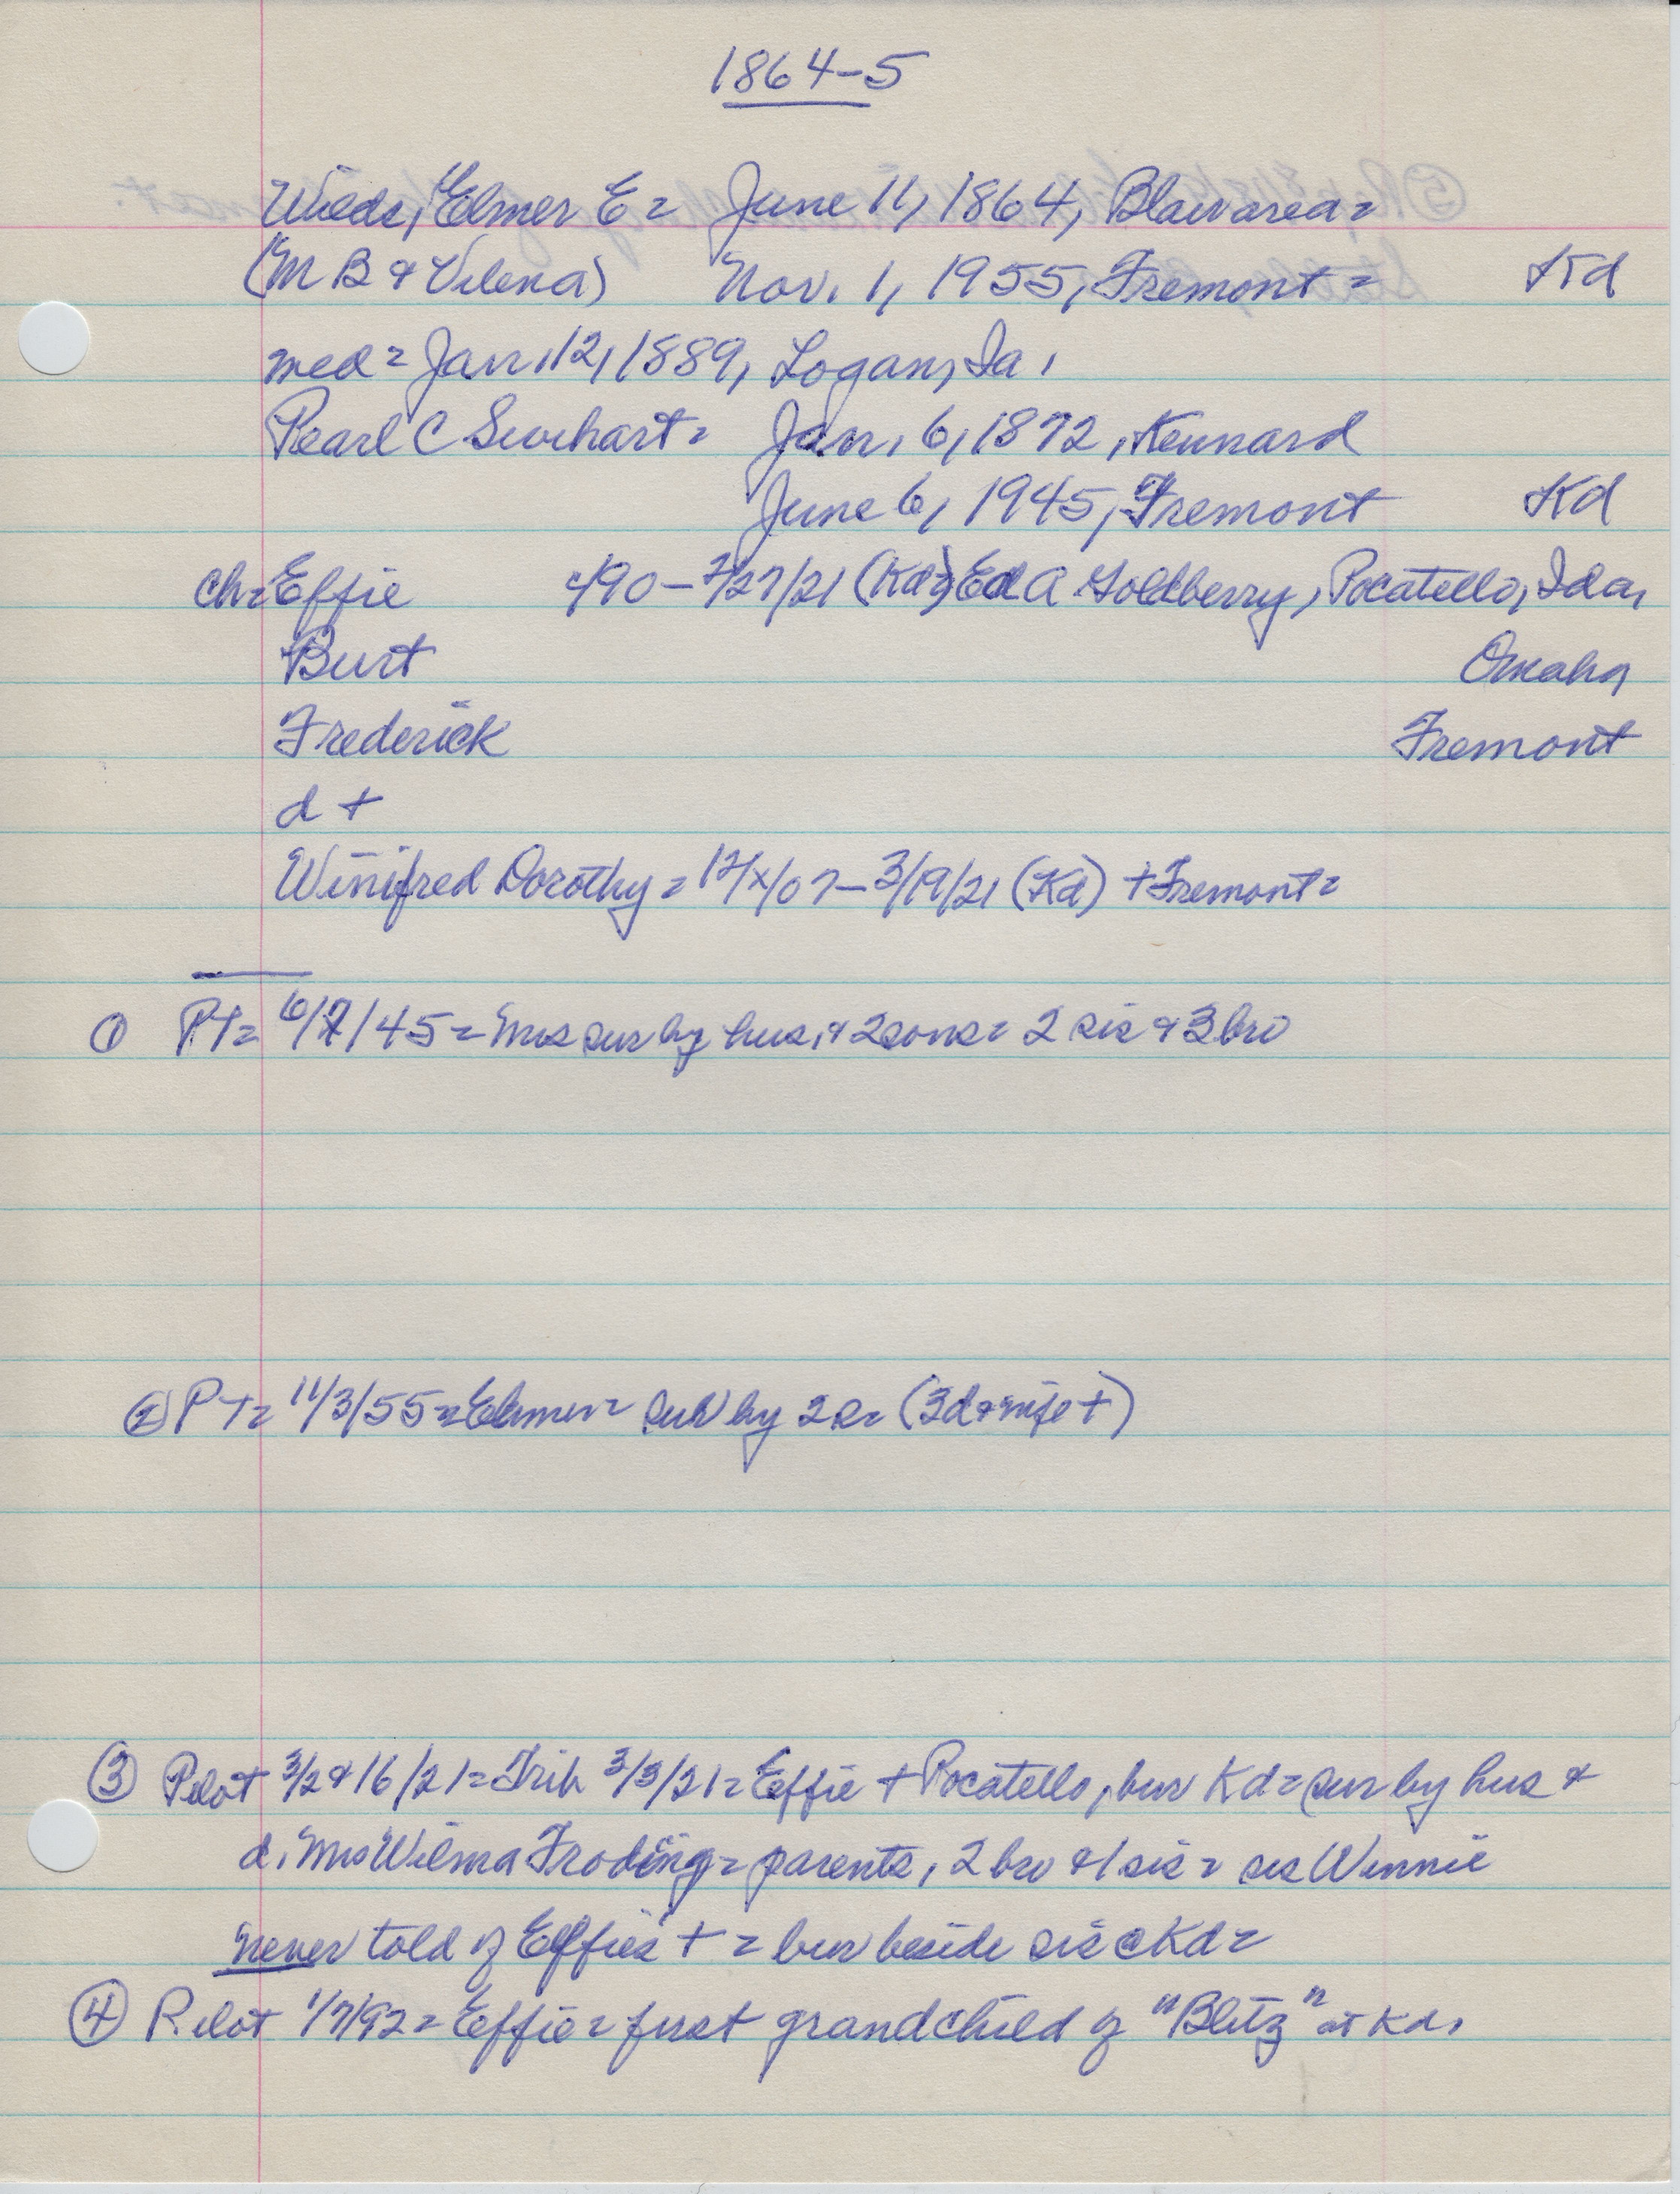 1864-5
Wilde, Elmer E = June 11, 1864, Blair area =
(M B & Vilena) Nov. 1, 1955, Fremont = Kd
med = Jan. 12, 1889, Logan, Ia.
Pearl C Swihart = Jan. 6, 1872, Kennard
June 6, 1945, Fremont Kd
ch = Effie /90 - 2/27/21 (Kd) Ed A Goldberry, Pocatello, Ida,
Burt Omaha
Frederick Fremont
d +
Winifred Dorothy = 12/x/07 - 3/19/21 (Kd) + Fremont =
① PT = 6/7/45 = Mrs sur by hus, & 2 sons = 2 sis & 3 bro
② PT = 11/3/55 = Elmer = sur by 2 s = (3d & wife +)
③ Pilot 3/2 & 16/21 = Trib 3/3/21 = Effie + Pocatello, bur Kd = sur by hus &
d. Mrs Wilma Froding = parents, 2 bro & 1 sis = sis Winnie
never told of Effie's + = bur beside sis @ Kd =
④ Pilot 1/7/92 = Effie = first grandchild of "Blitz" at Kd.